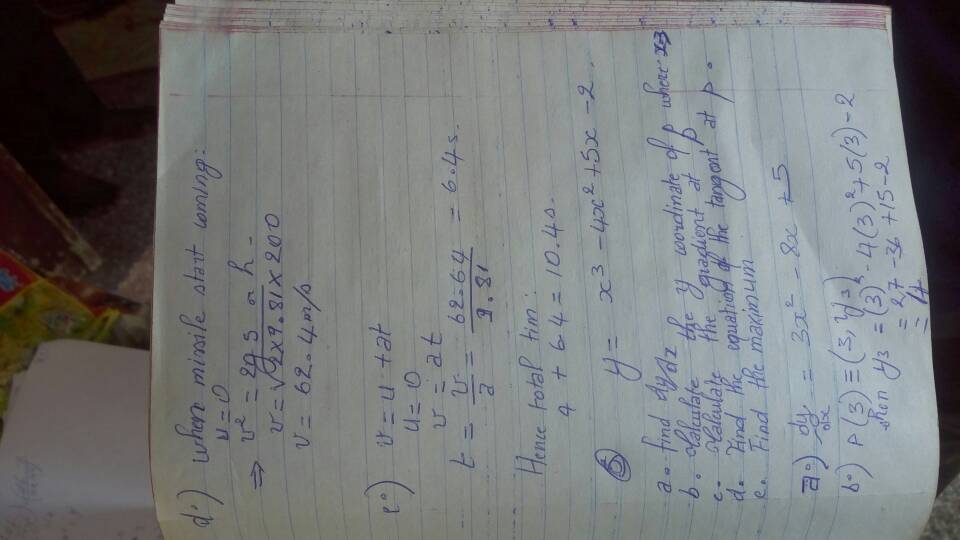 d.) where missile start coming:
u = 0
⇒ v² = 2gs or h -
v = √2×9.81×200
v = 62.4 m/s
e.) v = u + at
u = 0
v = at
t = v/a = 62.64/9.81 = 6.4 s.
Hence total tim:
4 + 6.4 = 10.4 s.
⑥ y = x³ - 4x² + 5x - 2.
a. find dy/dx
b. Calculate the y coordinate of p where x=3
c. Calculate the gradient at p
d. Find the equation of the tangent at p.
e. Find the maximum
a.) dy/dx = 3x² - 8x + 5
b.) P(3) ≡ (3, y₃)
then y₃ = (3)³ - 4(3)² + 5(3) - 2
= 27 - 36 + 15 - 2
= 4